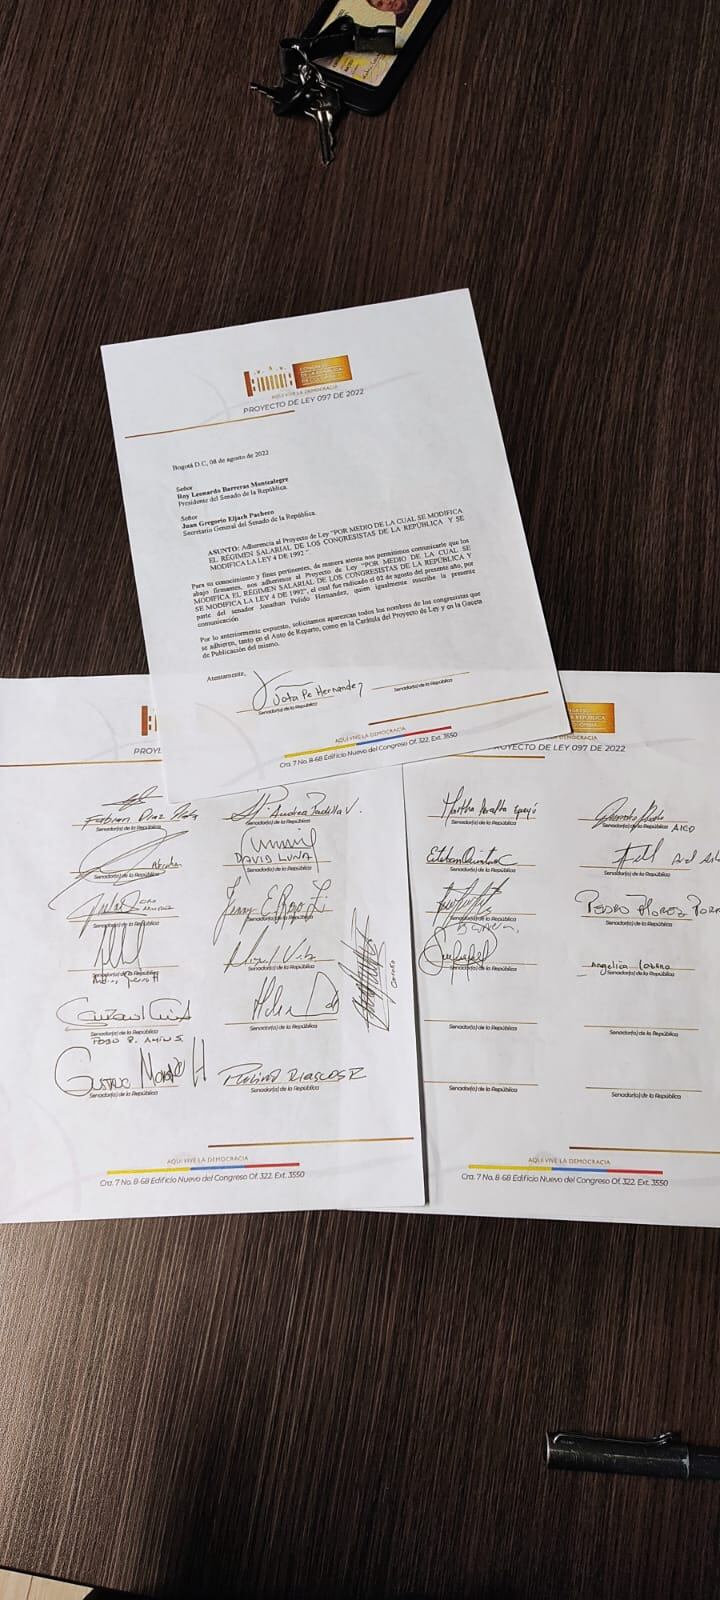 CONGRESO
DE LA REPÚBLICA
DE COLOMBIA
AQUÍ VIVE LA DEMOCRACIA
PROYECTO DE LEY 097 DE 2022
Bogotá D.C, 08 de agosto de 2022
Señor
Roy Leonardo Barreras Montealegre
Presidente del Senado de la República.
Señor
Juan Gregorio Eljach Pacheco
Secretario General del Senado de la República.
ASUNTO: Adherencia al Proyecto de Ley "POR MEDIO DE LA CUAL SE MODIFICA
EL RÉGIMEN SALARIAL DE LOS CONGRESISTAS DE LA REPÚBLICA Y SE
MODIFICA LA LEY 4 DE 1992".
Para su conocimiento y fines pertinentes, de manera atenta nos permitimos comunicarle que los
abajo firmantes, nos adherimos al Proyecto de Ley "POR MEDIO DE LA CUAL SE
MODIFICA EL RÉGIMEN SALARIAL DE LOS CONGRESISTAS DE LA REPÚBLICA Y
SE MODIFICA LA LEY 4 DE 1992", el cual fue radicado el 02 de agosto del presente año, por
parte del senador Jonathan Pulido Hernández, quien igualmente suscribe la presente
comunicación
Por lo anteriormente expuesto, solicitamos aparezcan todos los nombres de los congresistas que
se adhieren, tanto en el Auto de Reparto, como en la Carátula del Proyecto de Ley y en la Gaceta
de Publicación del mismo.
Atentamente,
Jota Pe Hernandez
Senador(a) de la República
Senador(a) de la República
AQUÍ VIVE LA DEMOCRACIA
Cra. 7 No. 8-68 Edificio Nuevo del Congreso Of. 322. Ext. 3550
PROYE
Fabian Diaz Plata
Andrea Padilla V.
Senador(a) de la República
Senador(a) de la República
DAVID LUNA
Senador(a) de la República
Senador(a) de la República
Senador(a) de la República
Senador(a) de la República
Senador(a) de la República
Senador(a) de la República
Senador(a) de la República
Gustavo Moreno H
Senador(a) de la República
Senador(a) de la República
AQUÍ VIVE LA DEMOCRACIA
Cra. 7 No. 8-68 Edificio Nuevo del Congreso Of. 322. Ext. 3550
DEMOCRACIA
OYECTO DE LEY 097 DE 2022
Martha Peralta Epieyú
AICO
Senador(a) de la República
Senador(a) de la República
Esteban Quintero C
Senador(a) de la República
Senador(a) de la República
PEDRO FLOREZ PORR
Senador(a) de la República
Senador(a) de la República
Angelica Lozano
Senador(a) de la República
Senador(a) de la República
Senador(a) de la República
Senador(a) de la República
Senador(a) de la República
Senador(a) de la República
AQUÍ VIVE LA DEMOCRACIA
Cra. 7 No. 8-68 Edificio Nuevo del Congreso Of. 322. Ext. 3550